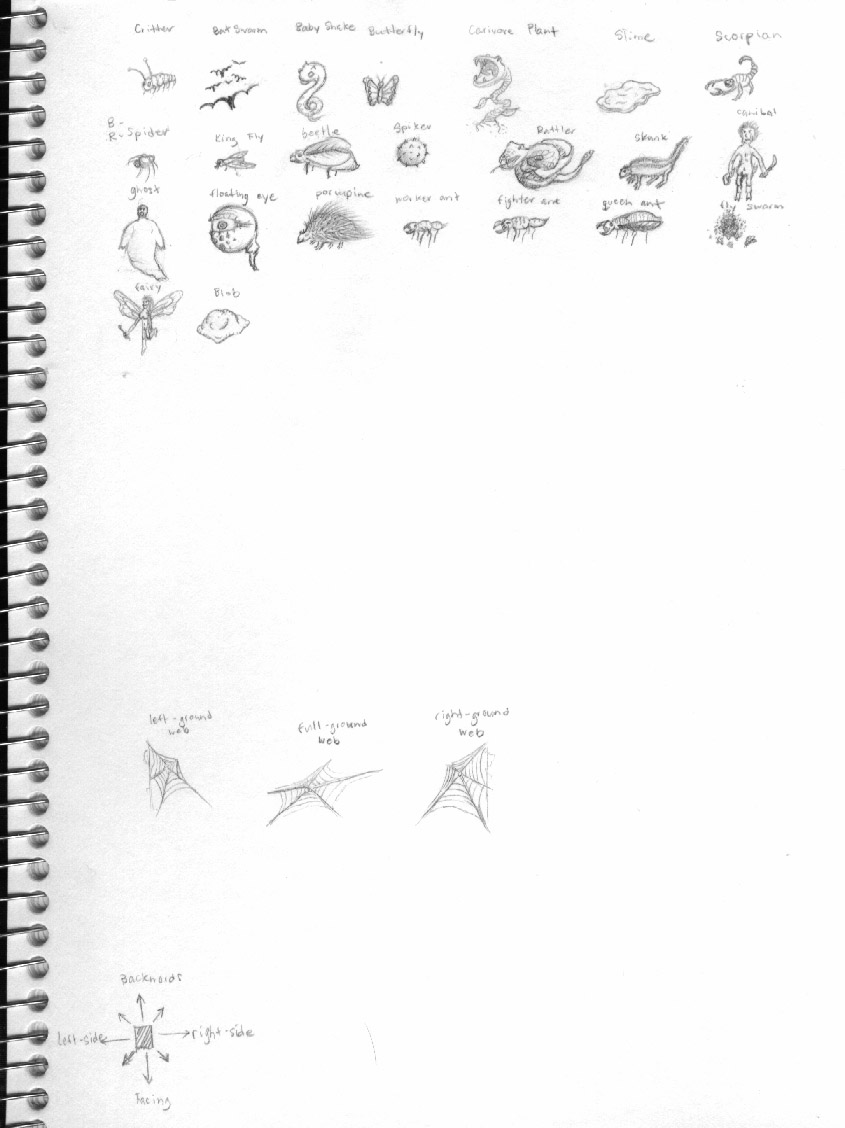 Critter Bat Swoom Baby Snake Buttterfly Carivore Plant Slime Scorpian
B-
R- Spider King Fly beetle Spiker Rattler skunk canibal
ghost floating eye porcupine worker ant fighter ant queen ant fly swarm
fairy Blob
left-ground
web
full-ground
web
right-ground
web
Backwords
left-side right-side
Facing